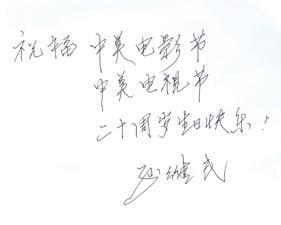 祝福 中美电影节
中美电视节
二十周岁生日快乐!